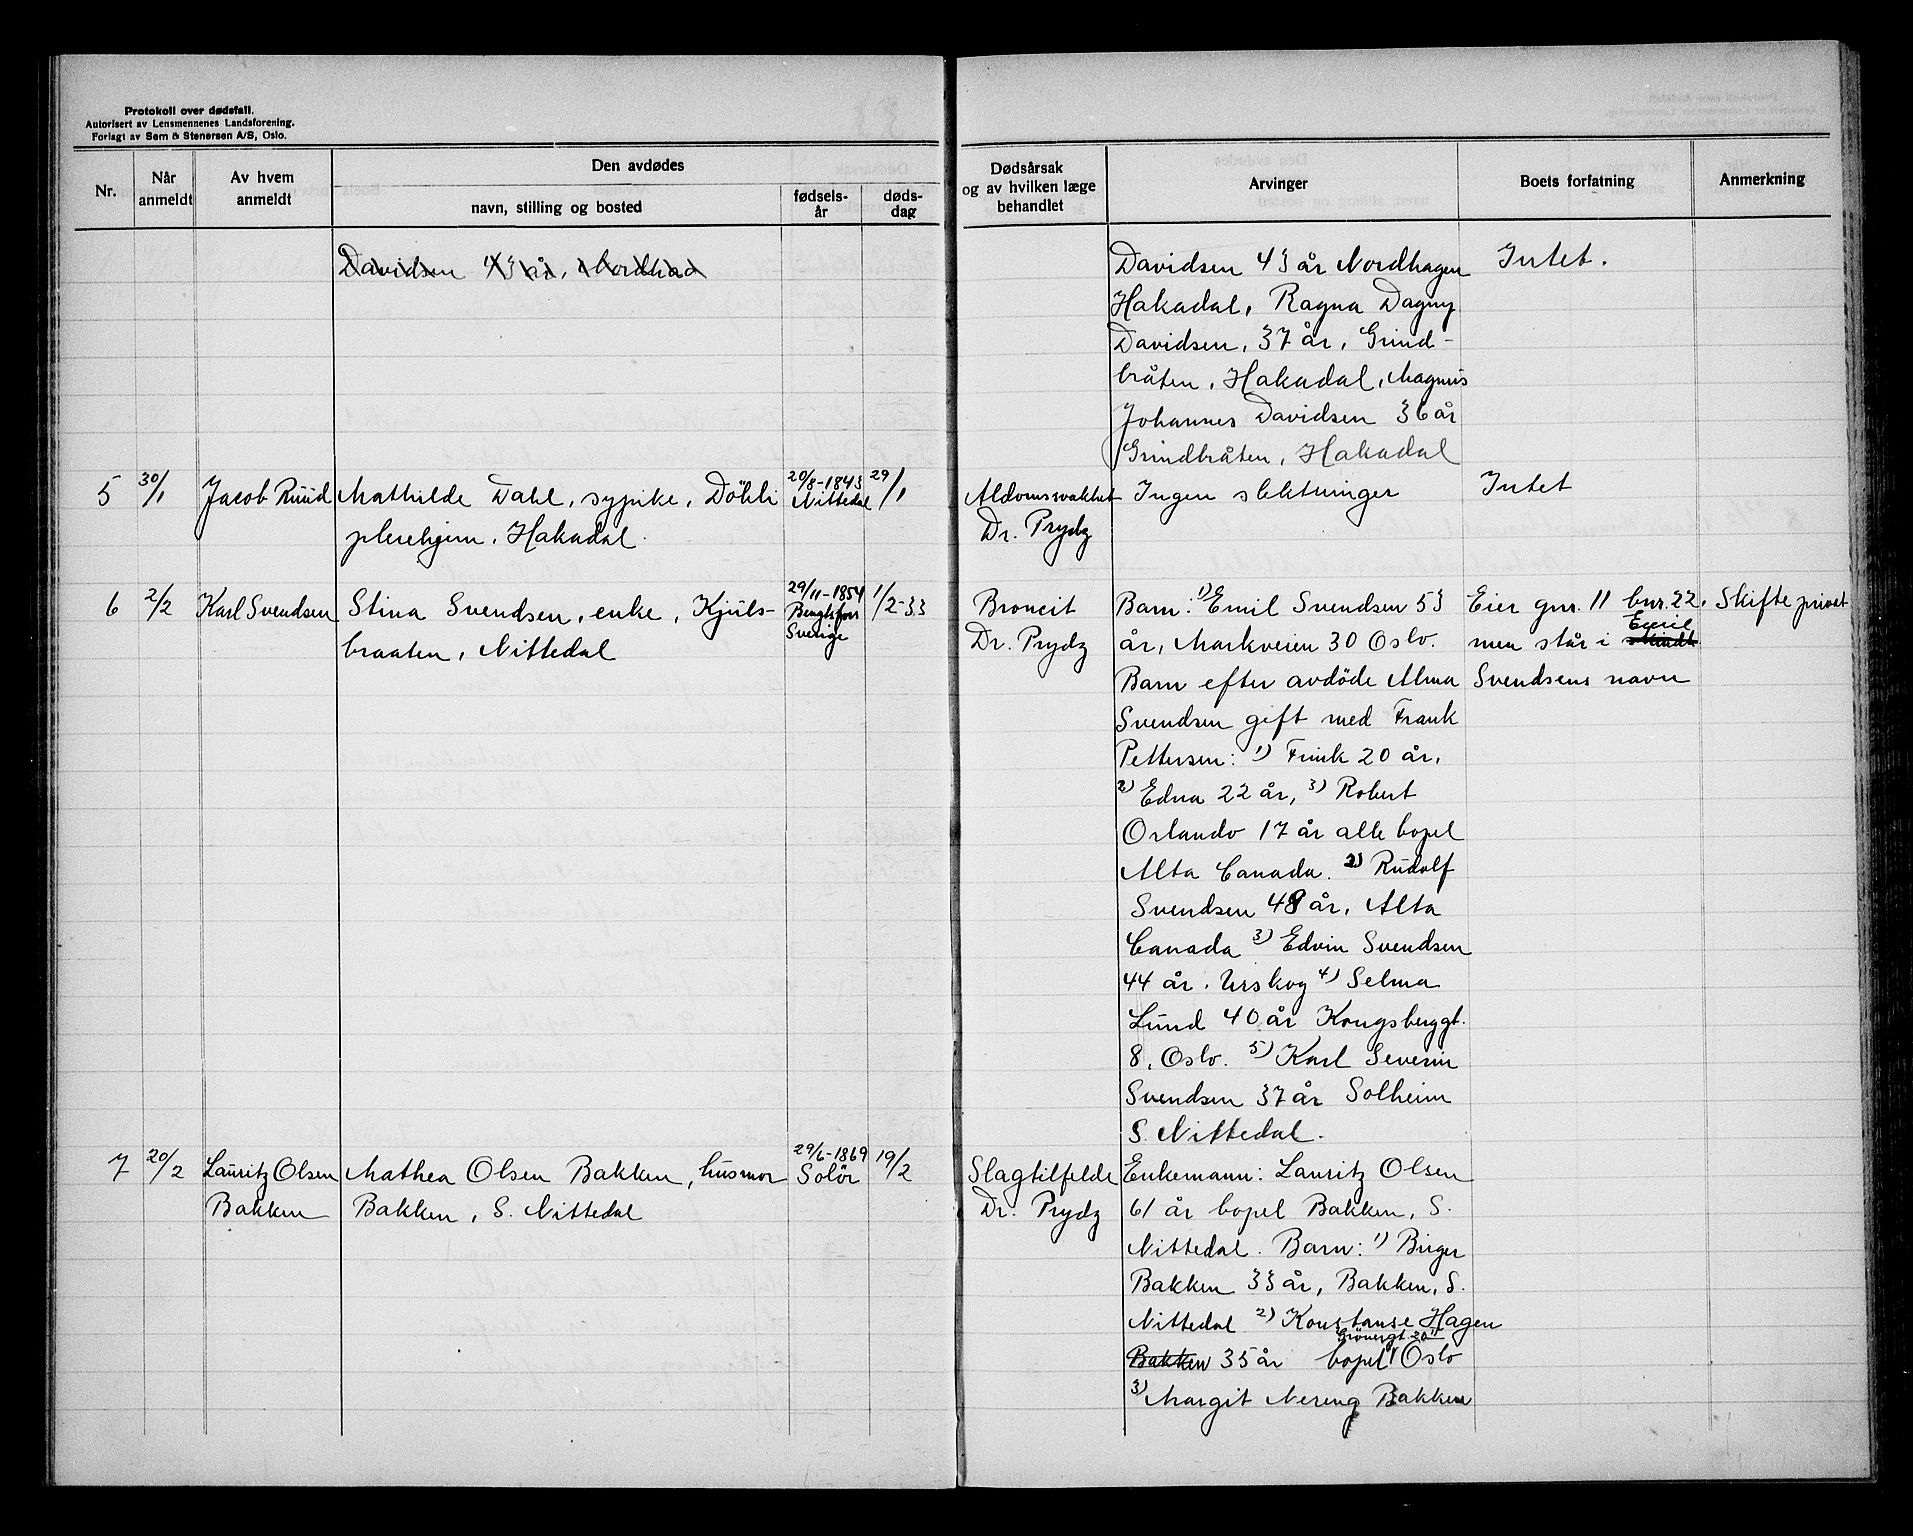 Protokoll over dødsfall.
Autorisert av Lensmennenes Landsforening.
Forlagt av Sem & Stenersen A/S, Oslo.
Nr.
Når anmeldt
Av hvem anmeldt
Den avdødes
navn, stilling og bosted
fødsels-år
døds-dag
Dødsårsak
og av hvilken læge
behandlet
Arvinger
Boets forfatning
Anmerkning
Davidsen 43 år, Nordhad
Davidsen 43 år Nordhagen
Hakadal, Ragna Dagny
Davidsen, 37 år, Grind-
bråten, Hakadal, Magnus
Johannes Davidsen 36 år
Grindbråten, Hakadal
Intet.
5 30/1 Jacob Ruud Mathilde Dahl, sypike, Döhli 20/8-1843 29/1
pleiehjem, Hakadal. Nittedal
Aldomssvakhet
Dr. Prydz
Ingen slektninger
Intet
6 2/2 Karl Svendsen Stina Svendsen, enke, Kjuls- 29/11-1854 1/2-33
braaten, Nittedal Bengtsfors
Sverige
Broncit
Dr. Prydz
Barn: 1) Emil Svendsen 53
år, Markveien 30 Oslo.
Barn efter avdöde Alma
Svendsen gift med Frank
Pettersen: 1) Frink 20 år,
2) Edna 22 år, 3) Robert
Orlando 17 år alle bopel
Alta Canada. 2) Rudolf
Svendsen 48 år, Alta
Canada 3) Edvin Svendsen
44 år. Urskog 4) Selma
Lund 40 år Kongsberggt.
8, Oslo. 5) Karl Severin
Svendsen 37 år Solheim
S. Nittedal.
Eier gnr. 11 bnr. 22,
Emil
men står i
Svendsens navn
Skifte privat
7 20/2 Lauritz Olsen Mathea Olsen Bakken, husmor 29/6-1869 19/2
Bakken Bakken, S. Nittedal Solör
Slagtilfelde
Dr. Prydz
Enkemann: Lauritz Olsen
61 år bopel Bakken, S.
Nittedal. Barn: 1) Birger
Bakken 33 år, Bakken, S.
Nittedal 2) Konstanse Hagen
Grönergt. 20 II
Bakken 35 år bopel Oslo
3) Margit Nereng Bakken